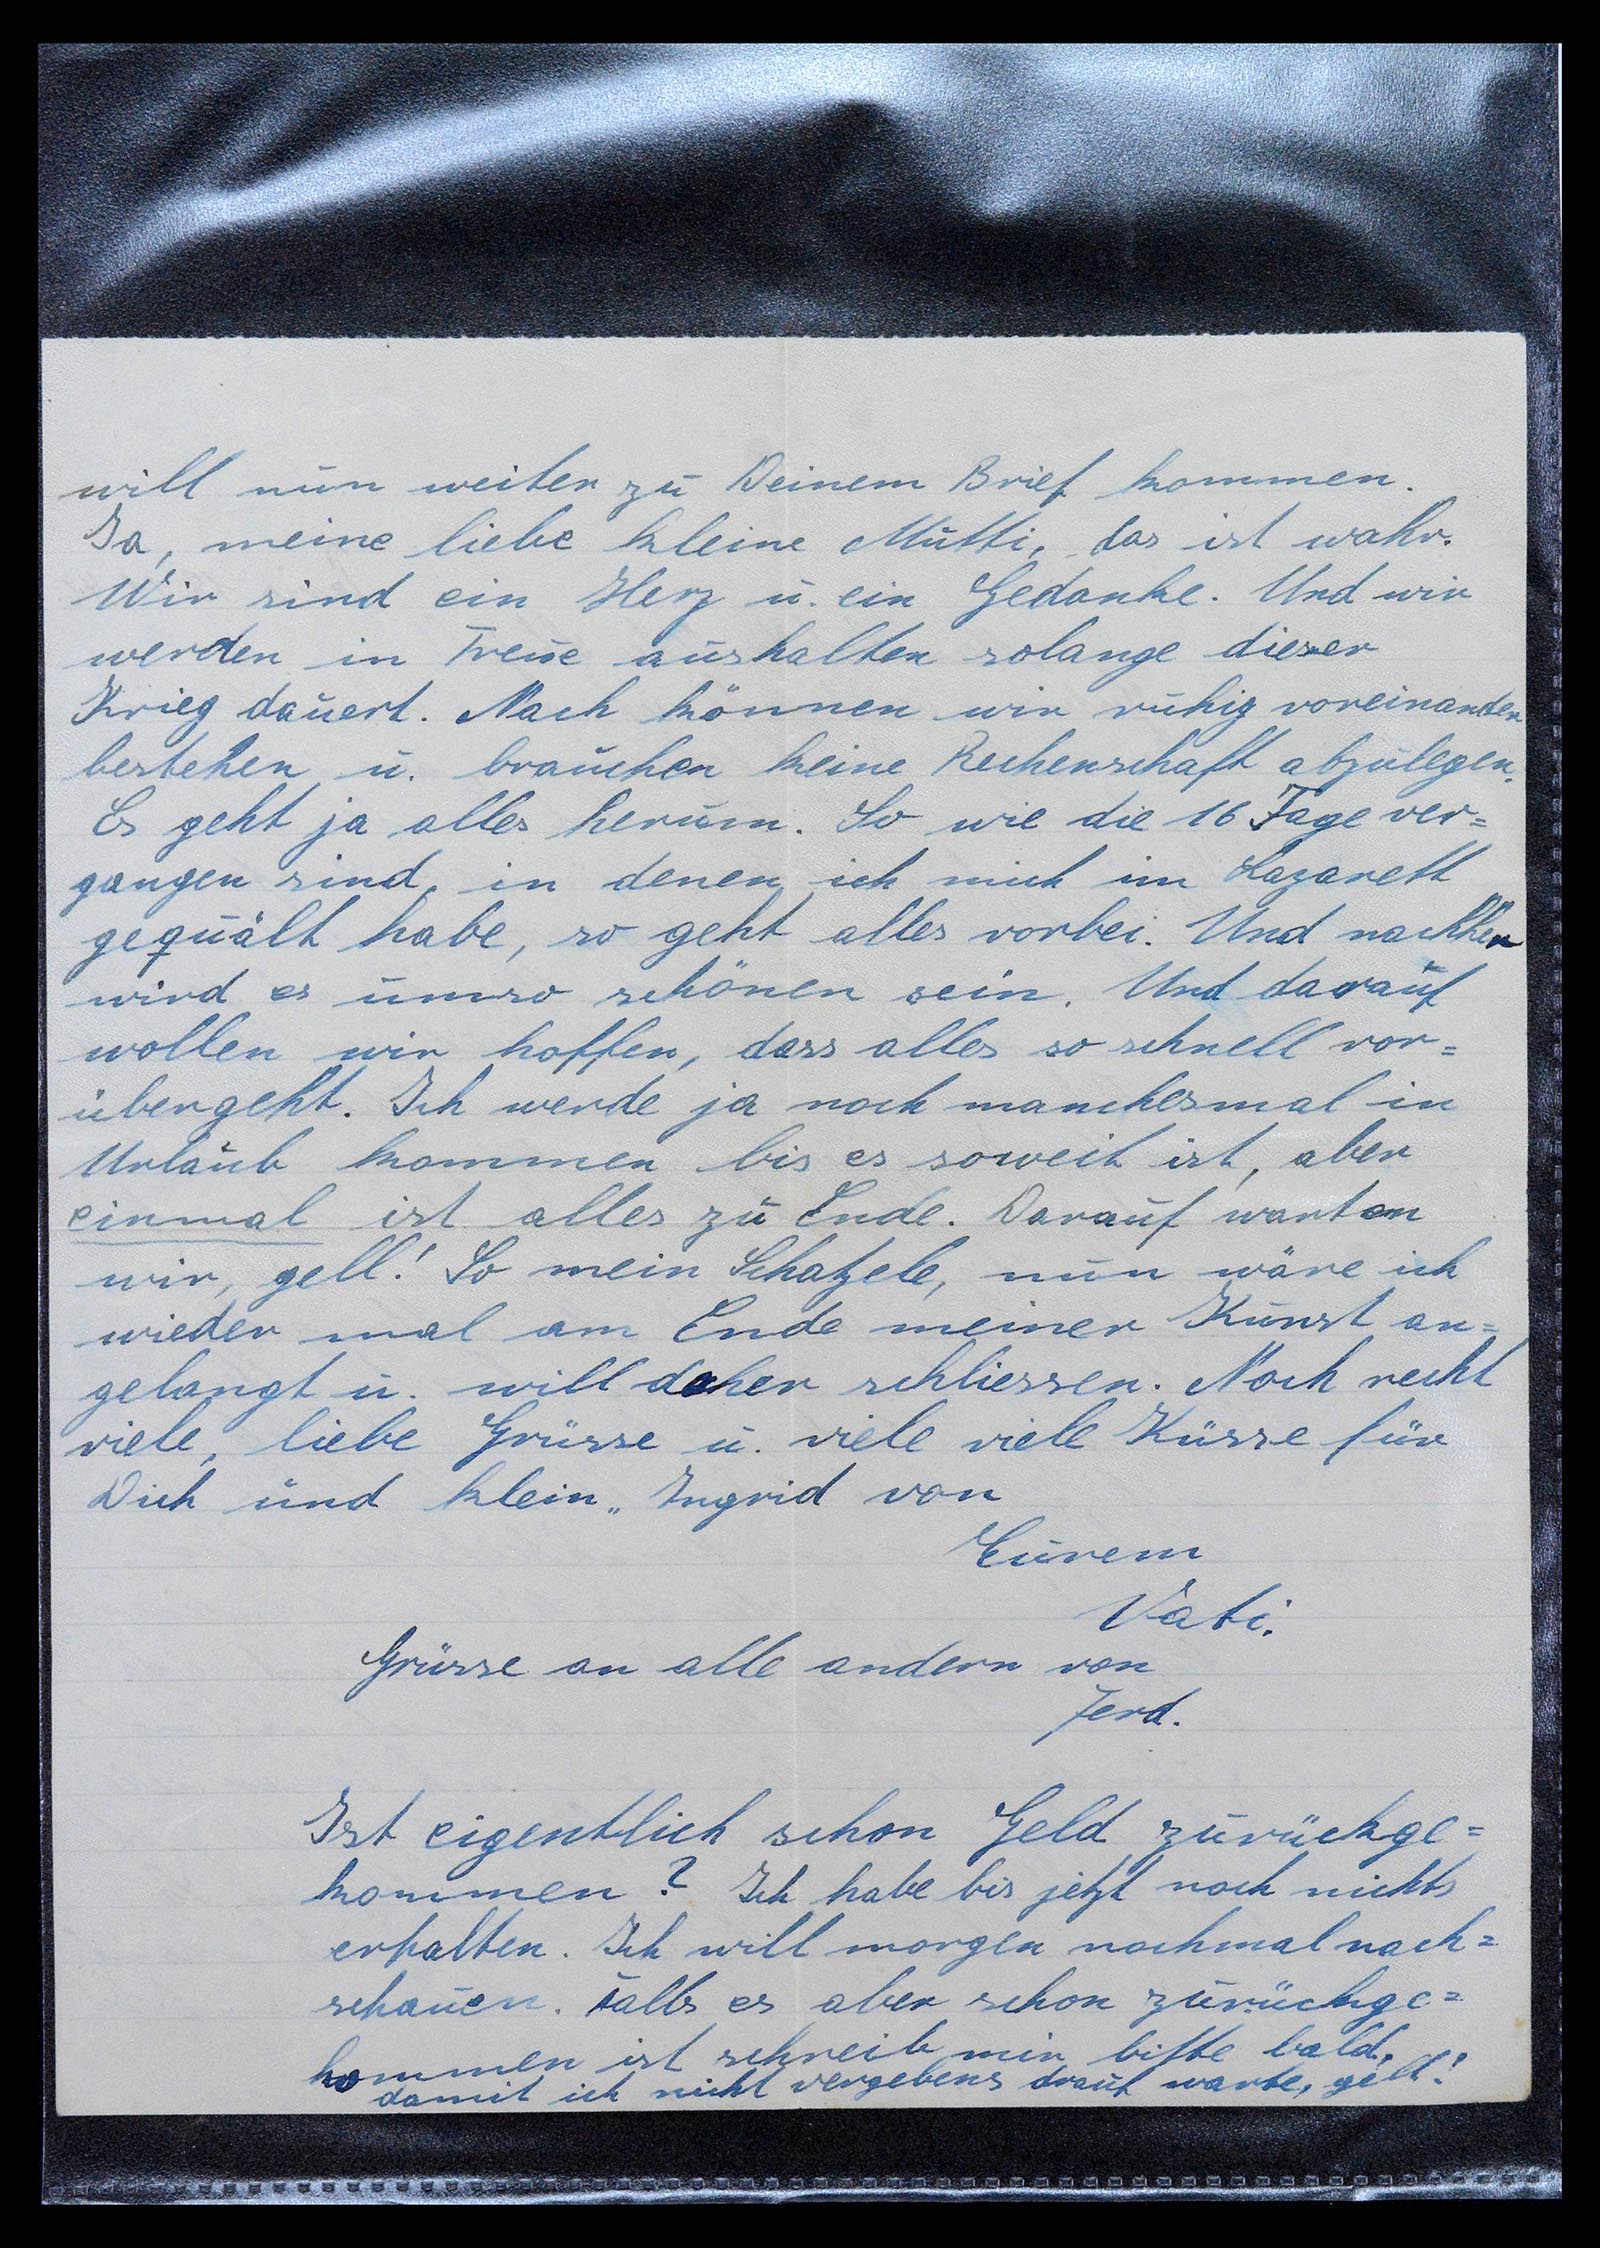 will nun weiter zu Deinem Brief kommen.
Ja, meine liebe kleine Mutti, das ist wahr.
Wir sind ein Herz u. ein Gedanke. Und wir
werden in Treue aushalten solange dieser
Krieg dauert. Nach können wir ruhig voreinander
bestehen u. brauchen keine Rechenschaft abzulegen.
Es geht ja alles herum. So wie die 16 Tage ver=
gangen sind, in denen ich mich im Lazarett
gequält habe, so geht alles vorbei. Und nachher
wird es umso schöner sein. Und darauf
wollen wir hoffen, dass alles so schnell vor=
übergeht. Ich werde ja noch manchesmal in
Urlaub kommen bis es soweit ist, aber
einmal ist alles zu Ende. Darauf warten
wir, gell! So mein Schatzele, nun wäre ich
wieder mal am Ende meiner Kunst an=
gelangt u. will daher schliessen. Noch recht
viele, liebe Grüsse u. viele viele Küsse für
Dich und klein„ Ingrid von
Eurem
Vati.
Grüsse an alle andern von
Ferd.
Ist eigentlich schon Geld zurückge=
kommen? Ich habe bis jetzt noch nichts
erhalten. Ich will morgen nochmal nach=
schauen. Falls es aber schon zurückge=
kommen ist schreib mir bitte bald,
damit ich nicht vergebens drauf warte, gell!